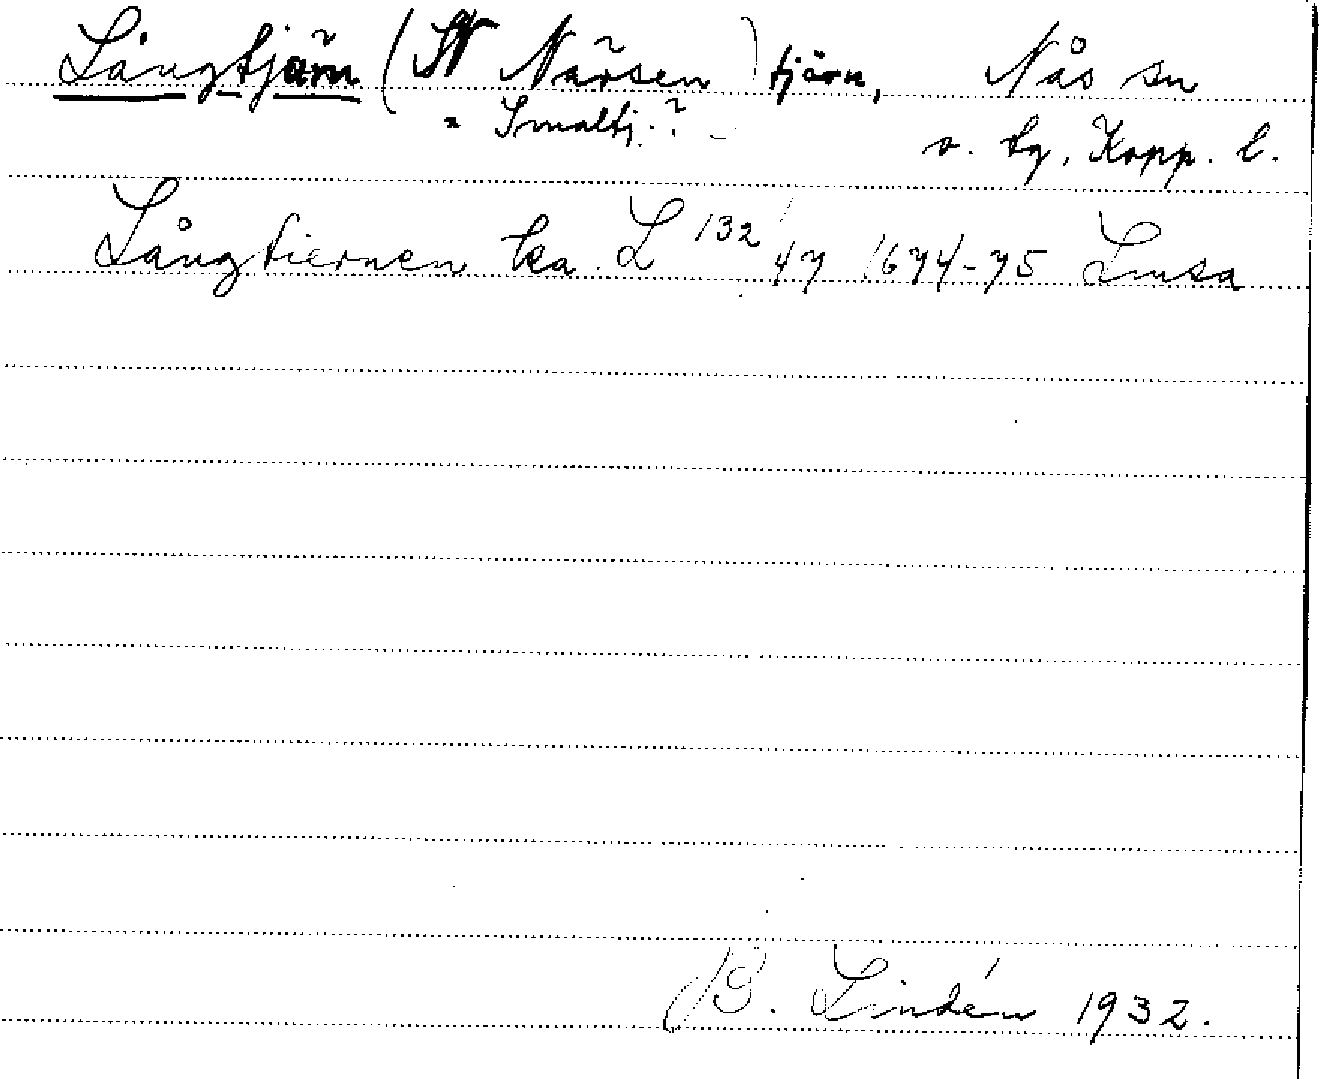 Långtjärn (N Närsen) tjärn, Nås sn
= Smaltj.? o. tg, Kopp. l.
Långtiernen ka. L 132/47 1674-75 Lmsa
B. Lindén 1932.